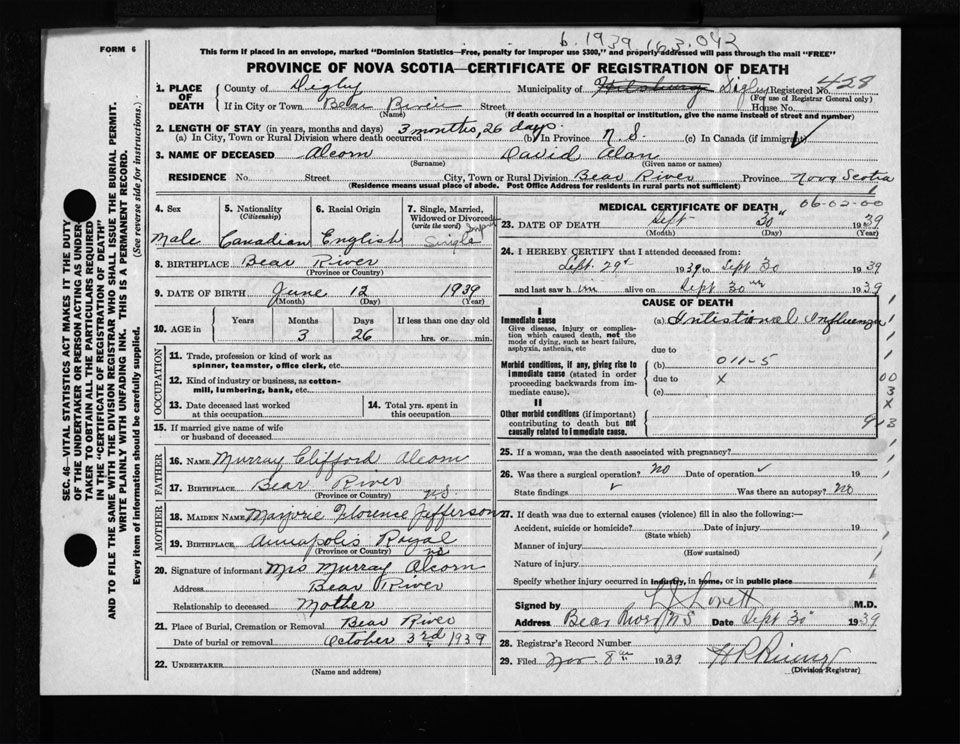 b. 1939 16.3.042
FORM 6
This form if placed in an envelope, marked "Dominion Statistics—Free, penalty for improper use $300," and properly addressed will pass through the mail "FREE"
PROVINCE OF NOVA SCOTIA—CERTIFICATE OF REGISTRATION OF DEATH
1. PLACE OF DEATH County of Digby Municipality of Hilsburg Digby Registered No. 428
(For use of Registrar General only)
If in City or Town Bear River Street House No.
(Name) (If death occurred in a hospital or institution, give the name instead of street and number)
2. LENGTH OF STAY (in years, months and days) 3 months, 26 days.
(a) In City, Town or Rural Division where death occurred (b) In Province N.S. (c) In Canada (if immigrant)
3. NAME OF DECEASED Alcorn David Alan
(Surname) (Given name or names)
RESIDENCE No. Street City, Town or Rural Division Bear River Province Nova Scotia
(Residence means usual place of abode. Post Office Address for residents in rural parts not sufficient)
4. Sex 5. Nationality (Citizenship) 6. Racial Origin 7. Single, Married, Widowed or Divorced (write the word)
Male Canadian English Single Infant
8. BIRTHPLACE Bear River
(Province or Country)
9. DATE OF BIRTH June 12 1939
(Month) (Day) (Year)
10. AGE in Years Months Days If less than one day old
3 26 hrs. or min.
OCCUPATION
11. Trade, profession or kind of work as spinner, teamster, office clerk, etc.
12. Kind of industry or business, as cotton-mill, lumbering, bank, etc.
13. Date deceased last worked at this occupation 14. Total yrs. spent in this occupation
15. If married give name of wife or husband of deceased
FATHER
16. NAME Murray Clifford Alcorn
17. BIRTHPLACE Bear River
(Province or Country) N.S.
MOTHER
18. MAIDEN NAME Marjorie Florence Jefferson
19. BIRTHPLACE Annapolis Royal
(Province or Country) NS
20. Signature of informant Mrs Murray Alcorn
Address Bear River
Relationship to deceased Mother
21. Place of Burial, Cremation or Removal Bear River
Date of burial or removal October 3rd 1939
22. UNDERTAKER
(Name and address)
MEDICAL CERTIFICATE OF DEATH 06-02-00
23. DATE OF DEATH Sept 30" 1939
(Month) (Day) (Year)
24. I HEREBY CERTIFY that I attended deceased from:
Sept. 29th 1939 to Sept 30 1939
and last saw him alive on Sept 30th 1939
CAUSE OF DEATH
I
Immediate cause (a) Intistional Influenza
Give disease, injury or complication which caused death, not the mode of dying, such as heart failure, asphyxia, asthenia, etc
due to
Morbid conditions, if any, giving rise to immediate cause (stated in order proceeding backwards from immediate cause). (b) 011-5
due to X
(c)
II
Other morbid conditions (if important) contributing to death but not causally related to immediate cause.
00
3
X
9-13
25. If a woman, was the death associated with pregnancy?
26. Was there a surgical operation? No Date of operation 19
State findings Was there an autopsy? No
27. If death was due to external causes (violence) fill in also the following:—
Accident, suicide or homicide? Date of injury 19
(State which)
Manner of injury
(How sustained)
Nature of injury
Specify whether injury occurred in industry, in home, or in public place
Signed by Lovett M.D.
Address Bear River NS Date Sept 30" 1939
28. Registrar's Record Number
29. Filed Nov. 8th 1939
(Division Registrar)
SEC. 46—VITAL STATISTICS ACT MAKES IT THE DUTY
OF THE UNDERTAKER OR PERSON ACTING AS UNDER-
TAKER TO OBTAIN ALL THE PARTICULARS REQUIRED
IN THE "CERTIFICATE OF REGISTRATION OF DEATH"
AND TO FILE THE SAME WITH THE DIVISION REGISTRAR WHO SHALL ISSUE THE BURIAL PERMIT.
WRITE PLAINLY WITH UNFADING INK. THIS IS A PERMANENT RECORD.
Every item of information should be carefully supplied. (See reverse side for instructions.)